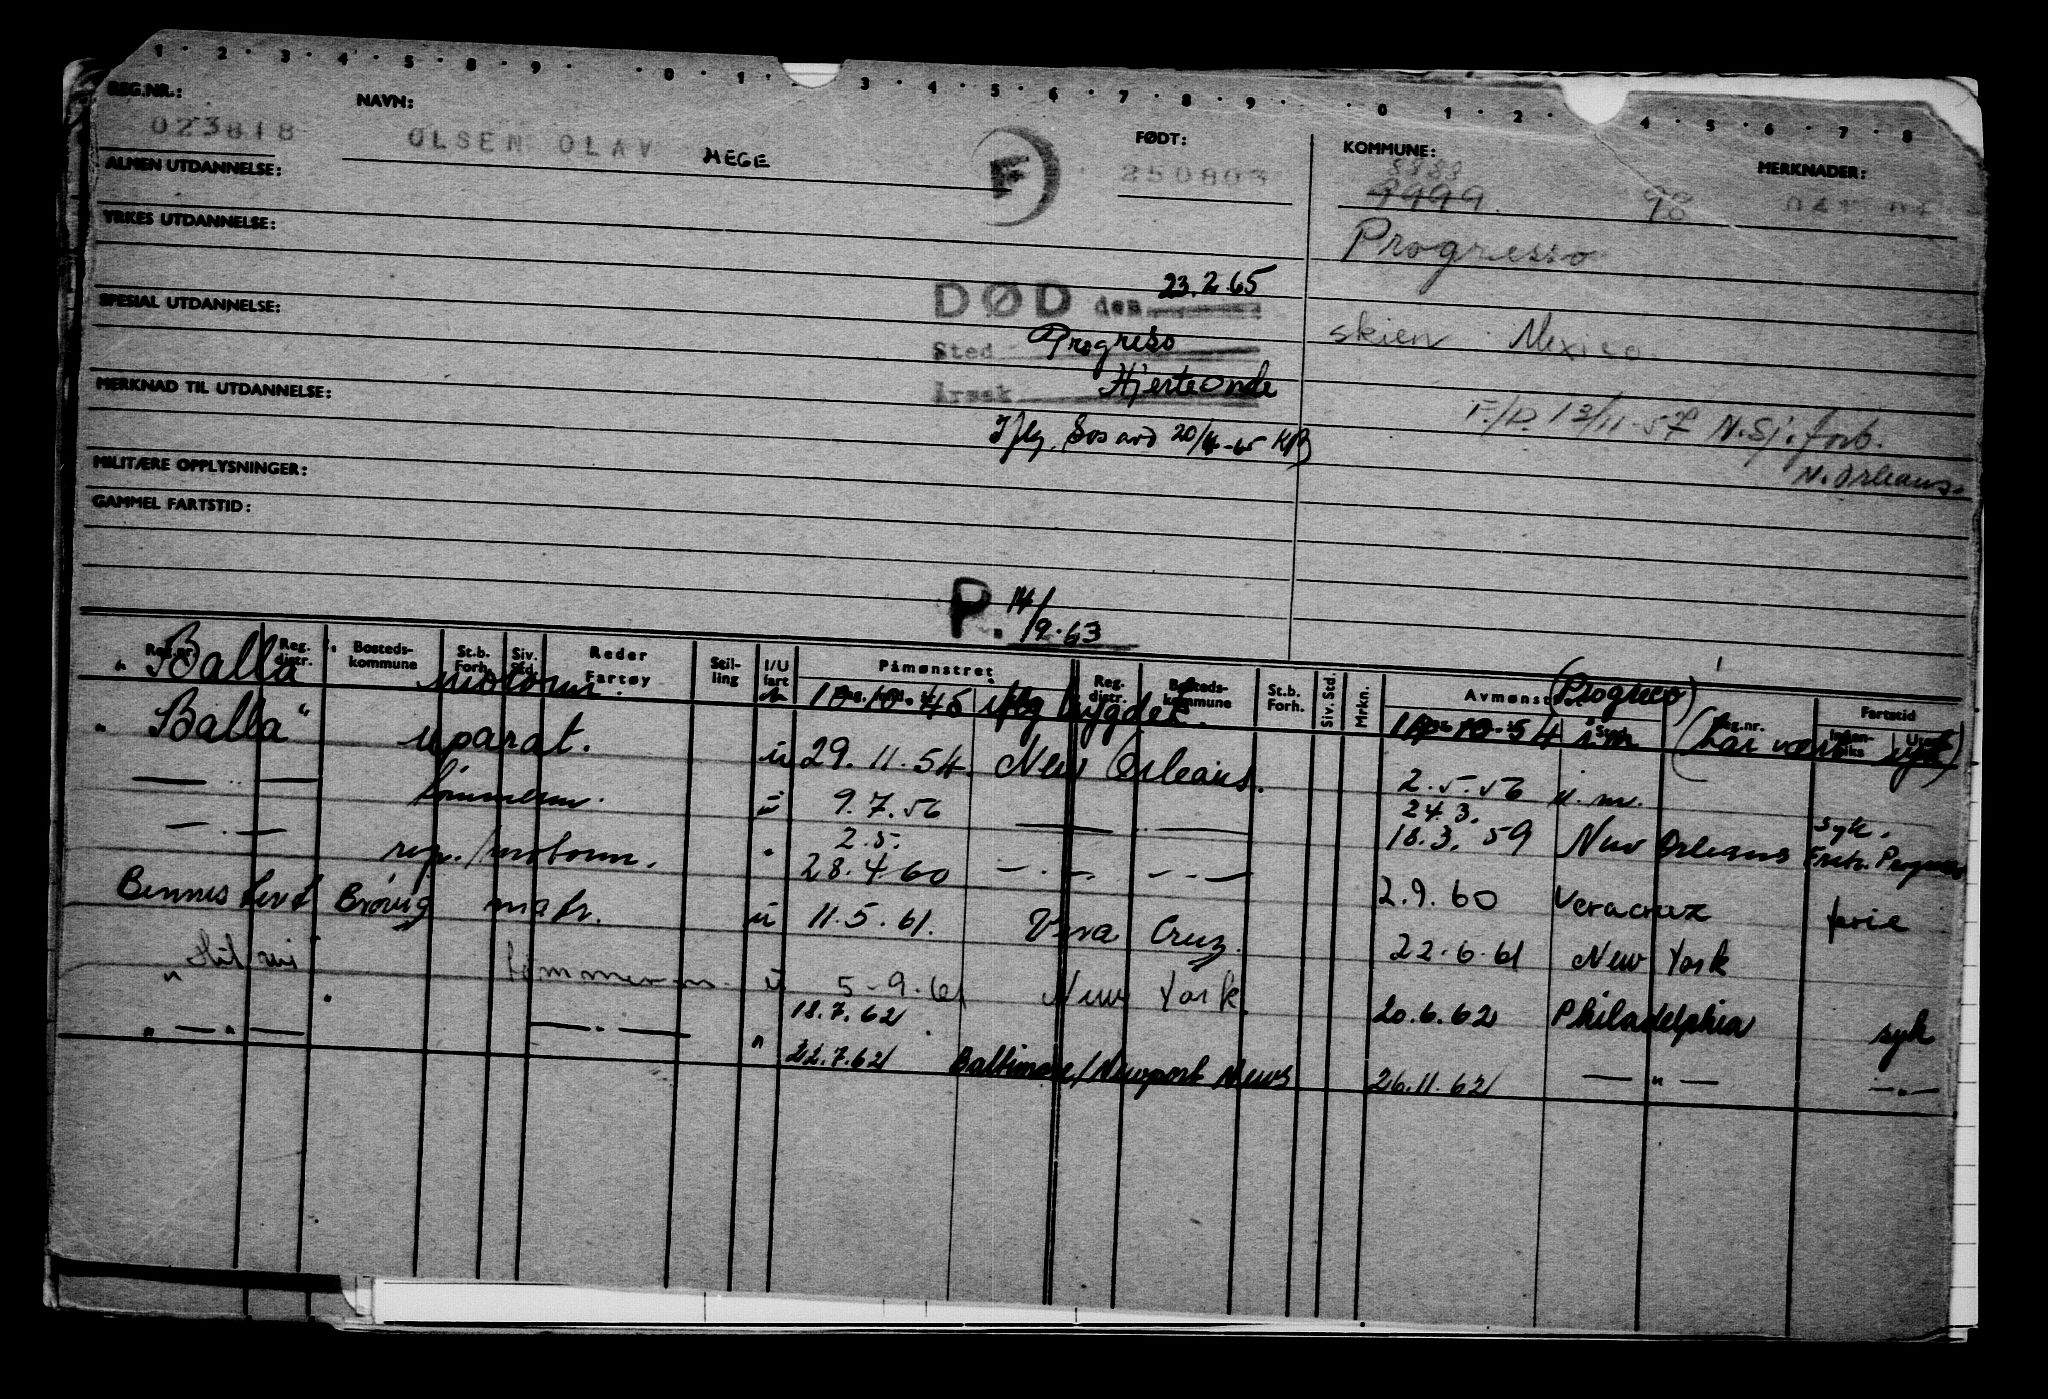 1 · 2 · 3 · 4 · 5 · 8 · 9 · · 0 · 1 · 3 · 4 · 5 · 6 · 7 · 8 · 9 · · 0 · 1 · 2 · 4 · 5 · 6 · 7 · 8
REG.NR.: NAVN: FØDT: KOMMUNE: MERKNADER:
023818 OLSEN OLAV HEGE F 250803 8889
9999. 98
ALMEN UTDANNELSE:
YRKES UTDANNELSE: Progresso
DØD den 23.2.65
SPESIAL UTDANNELSE: Sted Progreso skien Mexico
Årsak Hjerteonde
MERKNAD TIL UTDANNELSE: F./P. 13/11-57 N.Sj.forb.
Iflg. Sosavd 20/4-65 KB N. Orleans.
MILITÆRE OPPLYSNINGER:
GAMMEL FARTSTID:
P. 14/9.63
Reg.nr. Reg. distr. Bosteds-kommune St.b. Forh. Siv. Std. Reder Fartøy Stil-ling I/U fart Påmønstret Reg. distr. Bosteds-kommune St.b. Forh. Siv. Std. Mrkn. Avmønst Fartstid
"Balla" motorm. 10.10.45 iflg bygdek. (Progreso) 10.10.54 i.m. (har vært syk)
"Balla" uparat. ü 29.11.54. New Orleans. 2.5.56 i.m.
— " — tömmerm. ü 9.7.56 — " — 24.3. 18.3.59 New Orleans syk. Fratr. Progreso
— " — rep./motorm. " 2.5. 28.4.60 — " — — " — 2.9.60 Veracruz ferie
Bennestvet Brøvig matr. ü 11.5.61. Vera Cruz. 22.6.61 New York
tömmerm. ü 5-9.61 New York. 20.6.62 Philadelphia syk
" — " — — " — " 18.7.62. 22.7.62 Baltimore/Newport News 26.11.62 — " — — " —